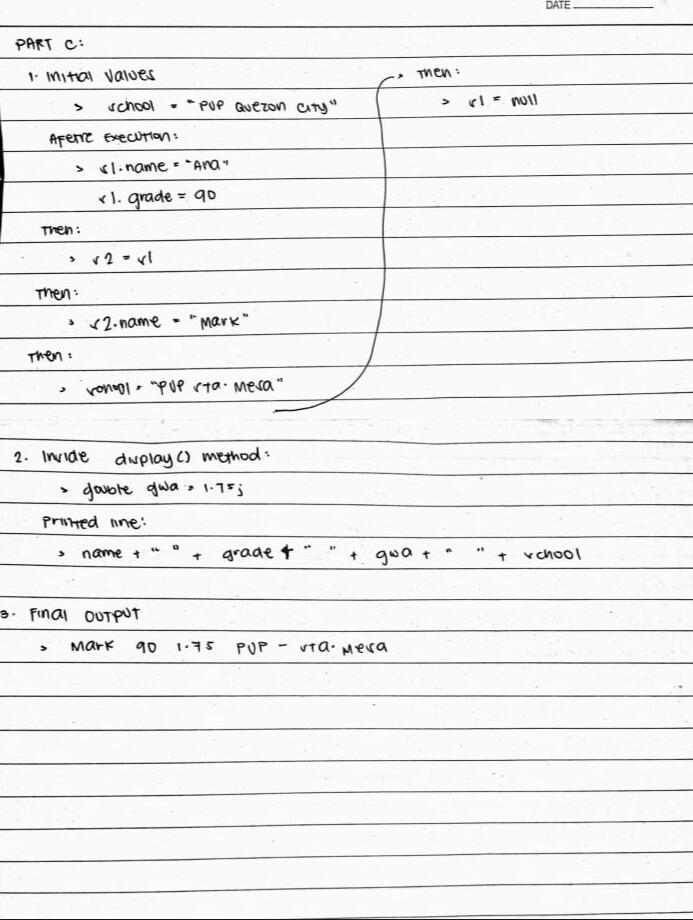 DATE
PART C:
1. Initial Values
> school = "PUP Quezon City"
After Execution:
> s1.name = "Ana"
s1.grade = 90
Then:
> s2 = s1
Then:
> s2.name = "Mark"
Then:
> school = "PUP Sta. Mesa"
> Then:
> s1 = null
2. Inside display() method:
> double gwa = 1.75;
Printed line:
> name + " " + grade + " " + gwa + " " + school
3. Final Output
> Mark 90 1.75 PUP - Sta. Mesa